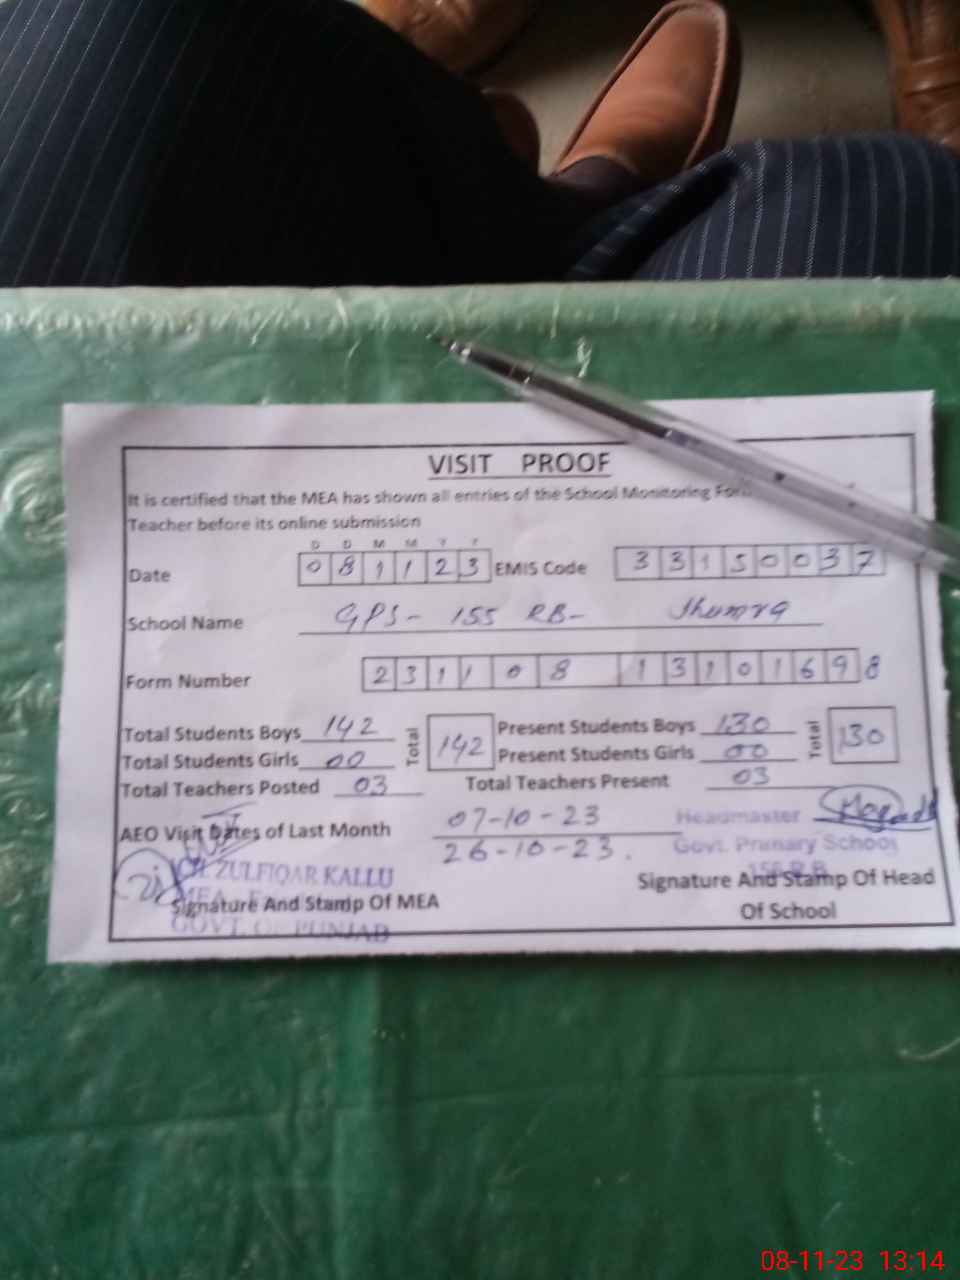 VISIT PROOF
It is certified that the MEA has shown all entries of the School Monitoring
Teacher before its online submission
D D M M Y Y
Date 0 8 1 1 2 3 EMIS Code 3 3 1 5 0 0 3 7
School Name GPS- 155 RB- Jhumra
Form Number 2 3 1 1 0 8 1 3 1 0 1 6 9 8
Total Students Boys 142 Total 142 Present Students Boys 130 Total 130
Total Students Girls 00 Present Students Girls 00
Total Teachers Posted 03 Total Teachers Present 03
AEO Visit Dates of Last Month 07-10-23
26-10-23.
Headmaster
Govt. Primary School
CH. ZULFIQAR KALLU
MEA
GOVT. OF PUNJAB
Signature And Stamp Of MEA
Signature And Stamp Of Head
Of School
08-11-23 13:14